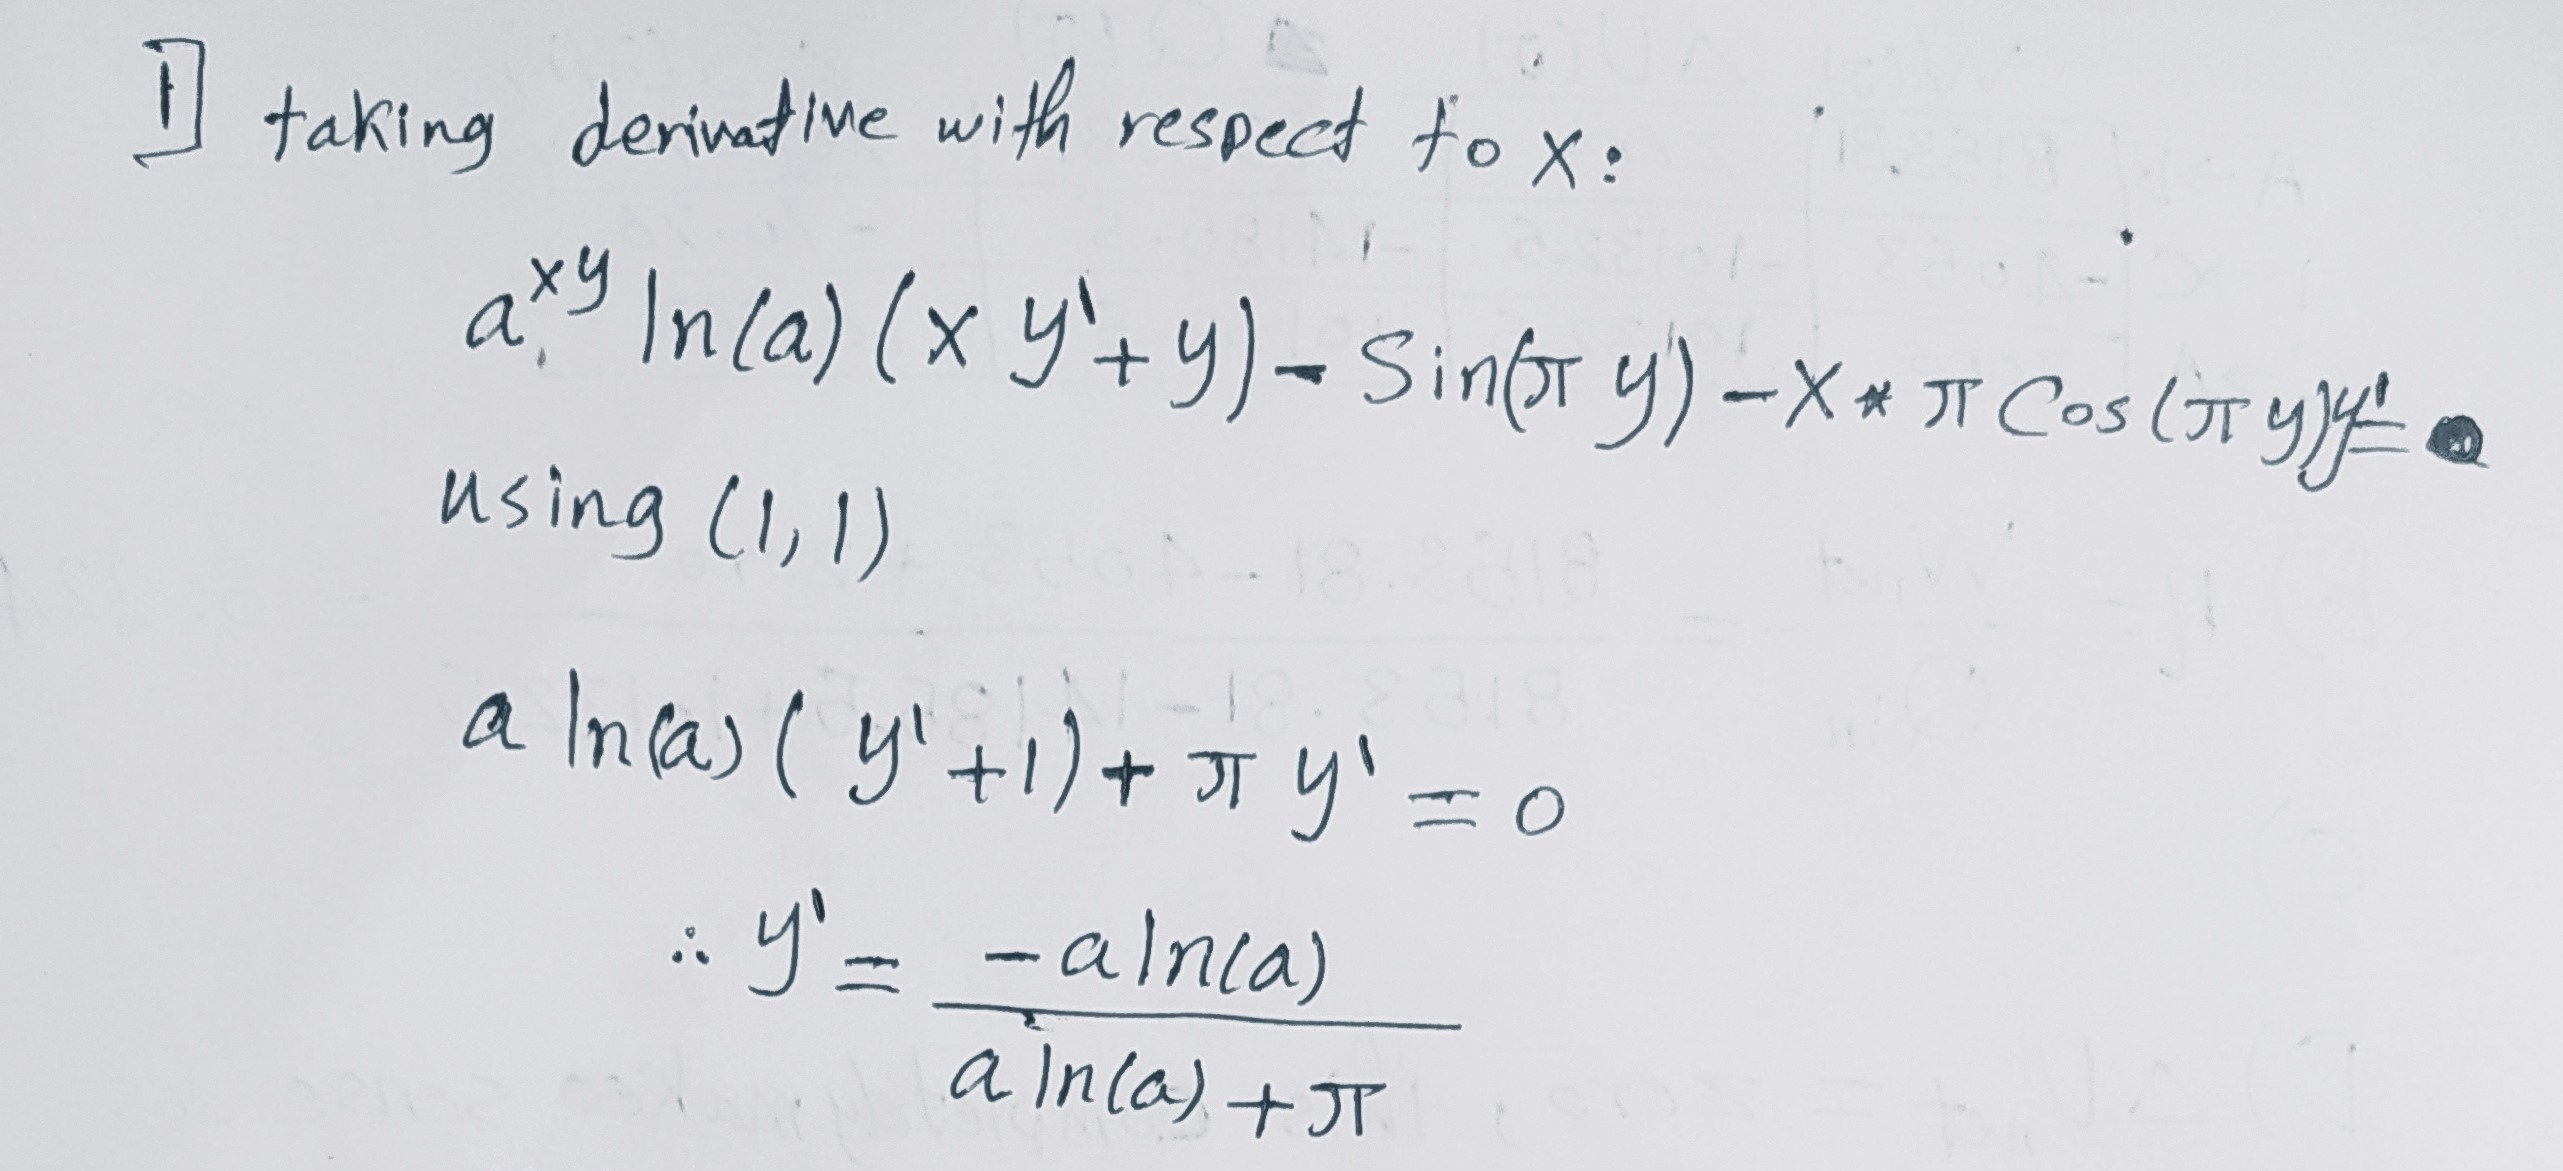 1] taking derivative with respect to x:
a^{xy} ln(a) (x y' + y) - Sin(π y) - x * π Cos(π y) y' =
using (1, 1)
a ln(a) ( y' + 1) + π y' = 0
∴ y' = \frac{-a ln(a)}{a ln(a) + π}